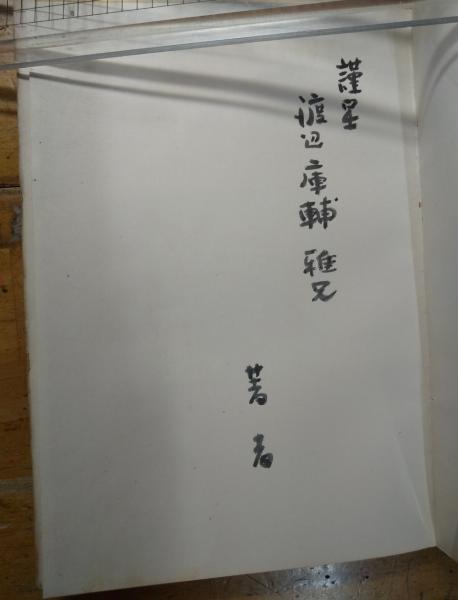 謹呈
渡辺庫輔 雅兄
著者